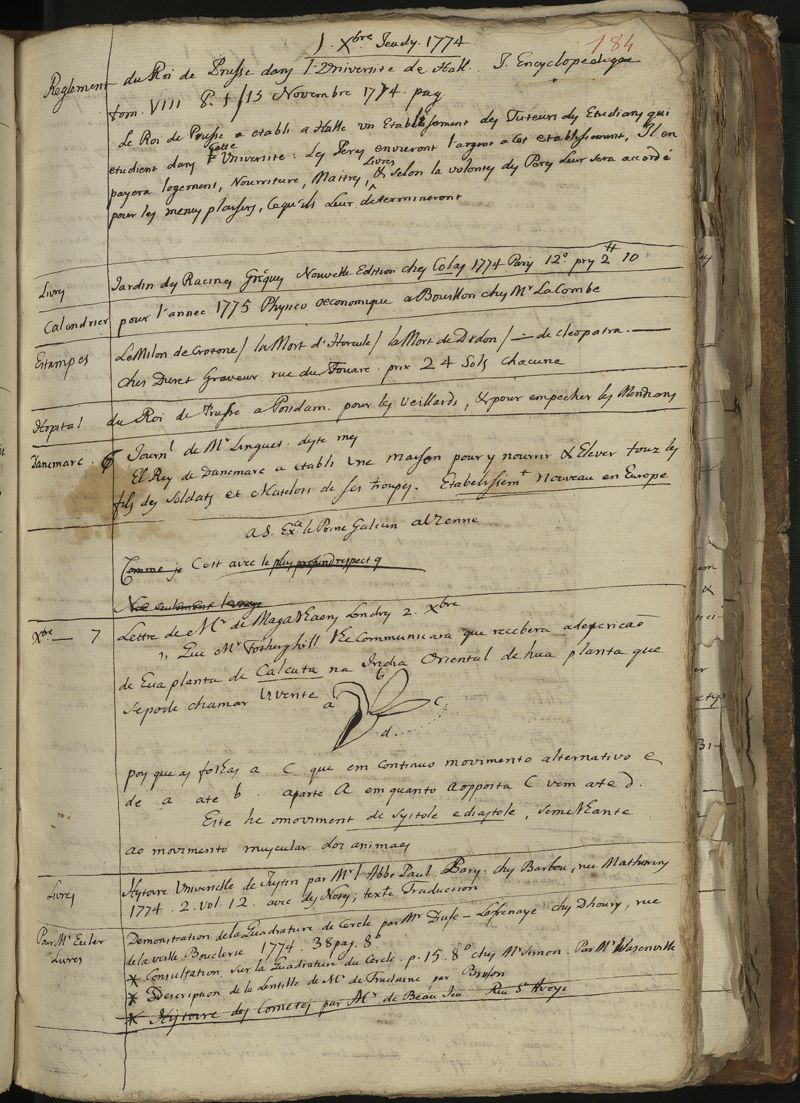 1. Xbre Jeudy. 1774
184
Reglement du Roi de Prusse dans l'Université de Hall. J. Encyclopedique
tom. VIII P. 1 / 15 Novembre 1774. pag
Le Roi de Prusse a etabli a Halle un Etablissement des Tuteurs des Etudians qui
etudient dans cette Université: Les Peres envieront l'argent a cet etablissement, Il en
payera logement, Nourriture, Maitres, Livres & selon la volontés des Peres Leur sera accordé
pour les menus plaisirs, Ce qu'ils Leur determineront
Livres Jardin des Racines Grecques Nouvelle Edition ches Colas 1774 Paris 12º prix 2 # 10
Calendrier pour l'annee 1775 Physico œconomique a Bouillon ches Mr LaCombe
Estampes Le Milon de Crotone / la Mort d'Hercule / la Mort de Didon / — de Cleopatra. —
Ches Duret Graveur rue du Fouare. prix 24 Sols chacune
Hopital du Roi de Prusse a Posdam. pour les Veillards, & pour empecher les Mendians
Danemarc. 6 Journl de Mr Linguet. dyte mes
El Rey de Danemarc a etabli une maison pour y nourrir & Elever touz les
fils des Soldats et Matelots de ses troupes. Etabelissiemt nouveau en Europe
a S. Exce le Prince Galicin a Vienne
Comme je C'est avec le plus profond respect q
Xbre — 7 Lettre de Mr de Magalhaens Londres 2. Xbre
Que Mr Fotherghill lhe Communicara que recebera a descricaõ
de Eua planta de Calcuta na India Oriental de hua planta que
se pode chamar Vivente
a b c d.
pois que as folhas a C que em Continuo movimento alternativo e
de a ate b. aparte A emquanto a opposta C vem ate D.
Este he o movimento de Systole e diastole, semelhante
ao movimento muscular dos animaes
Livres Hystoire Universelle de Justin par Mr l'Abbe Paul. Paris. ches Barbou, rue Mathurins
1774. 2. vol. 12. avec des Notes; texte Traduction
Pour Mr Euler Demonstration de la Quadrature de Cercle par Mr Dufe-Lafrenaye ches Dhoury, rue
Livres de la vielle Bouclerie 1774. 38 pag. 8º
* Consultation sur la Quadrature du Cercle. p. 15. 8º ches Mr Simon. Par Mr Vasenville
* Description de la Lentille de Mr de Trudaine par Brisson
* Hystoire des Cometes par Mr de Beau Jeu. Rue St Avoye